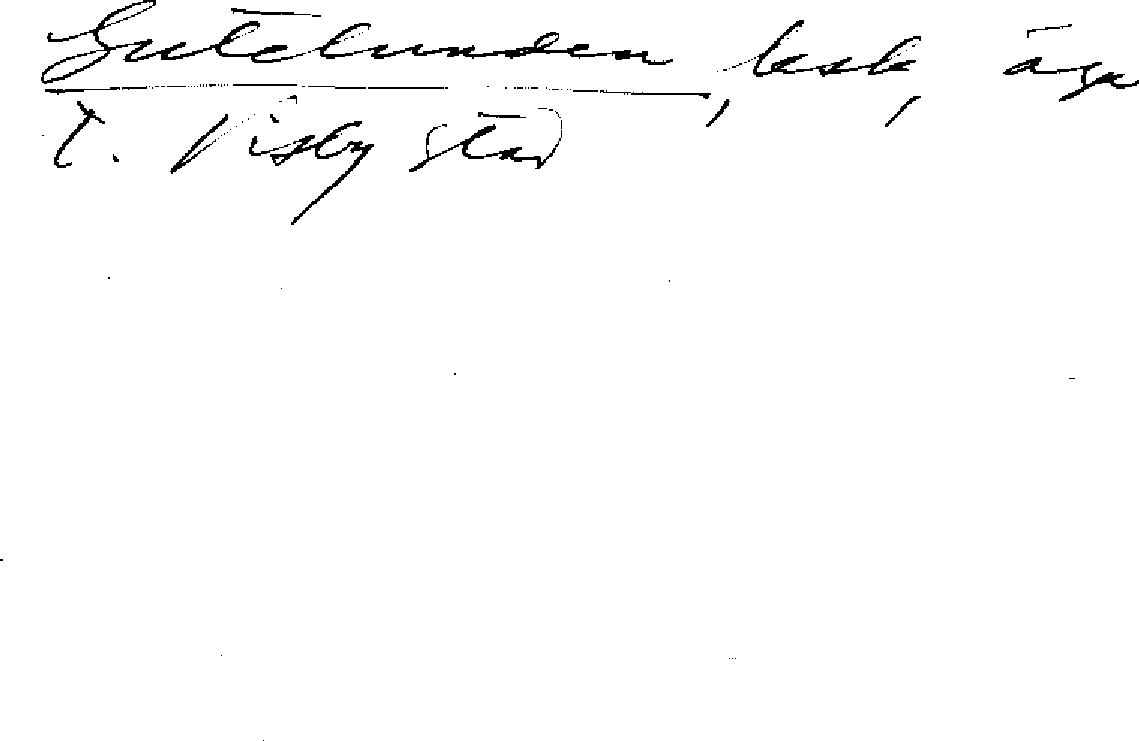 Gutelunden, lksk, äga
t. Visby stad